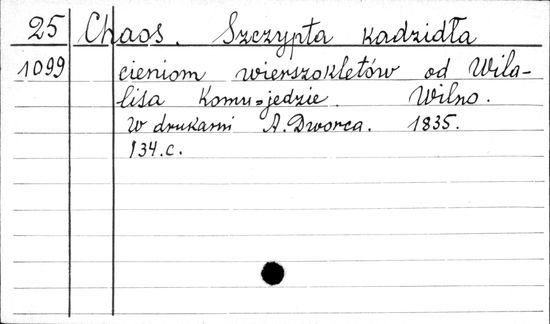 25 Chaos. Szczypta kadzidła
1099 cieniom wierszokletów od Wila-
lisa Komu=jedzie. Wilno.
W drukarni A. Dworca. 1835.
134.c.